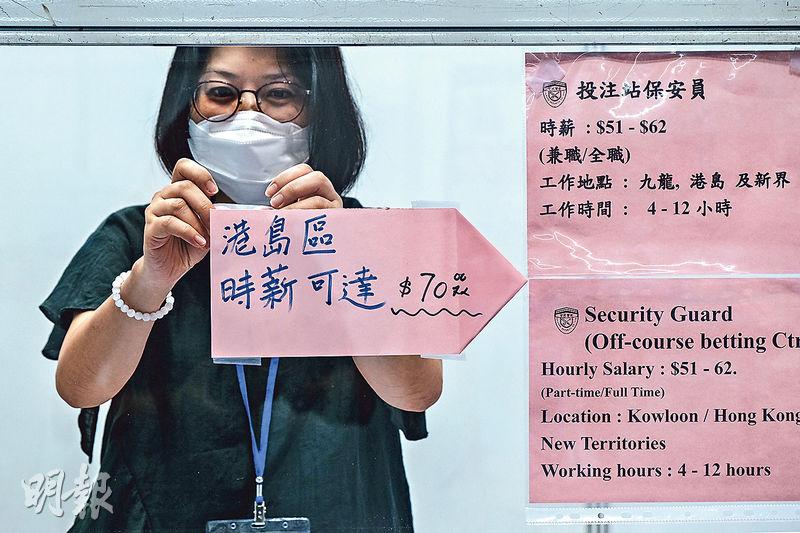 港島區
時薪可達 $70.00
投注站保安員
時薪 : $51 - $62
(兼職/全職)
工作地點 : 九龍, 港島 及新界
工作時間 : 4 - 12 小時
Security Guard
(Off-course betting Ctr
Hourly Salary : $51 - 62.
(Part-time/Full Time)
Location : Kowloon / Hong Kong
New Territories
Working hours : 4 - 12 hours
明報